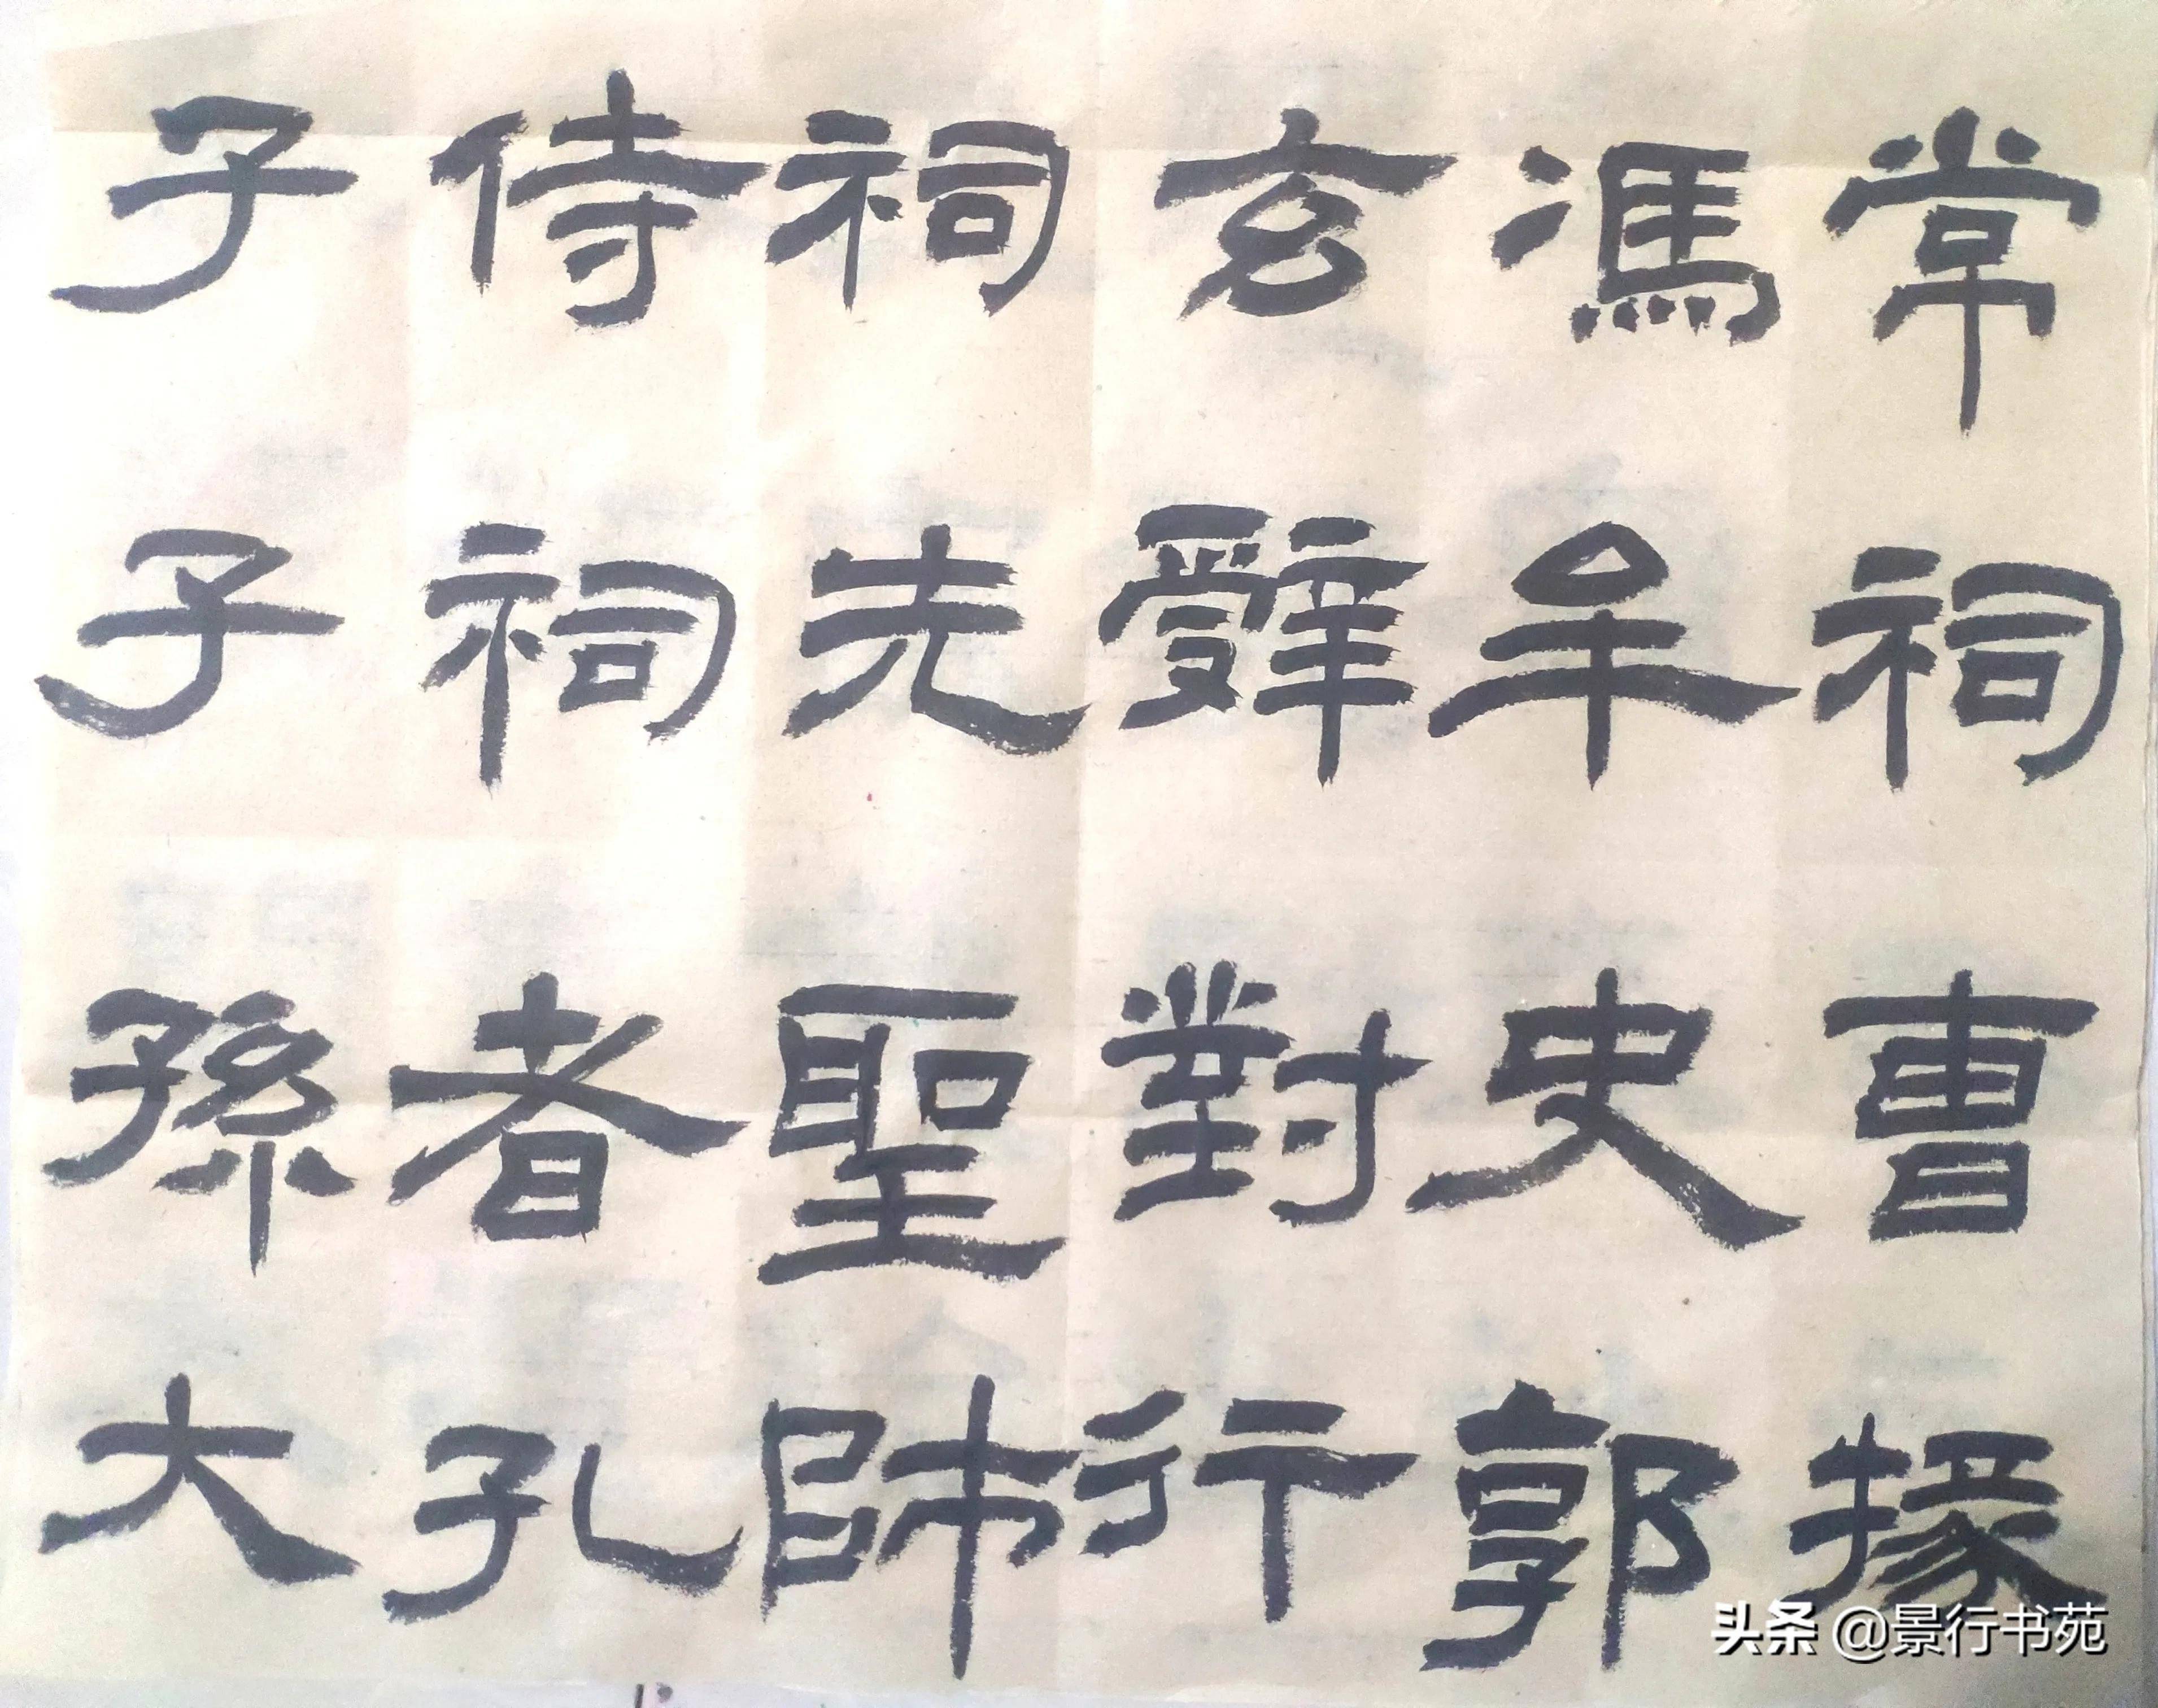 常祠曹掾
馮牟史郭
玄辤對行
祠先聖師
侍祠者孔
子子孫大
头条 @景行书苑